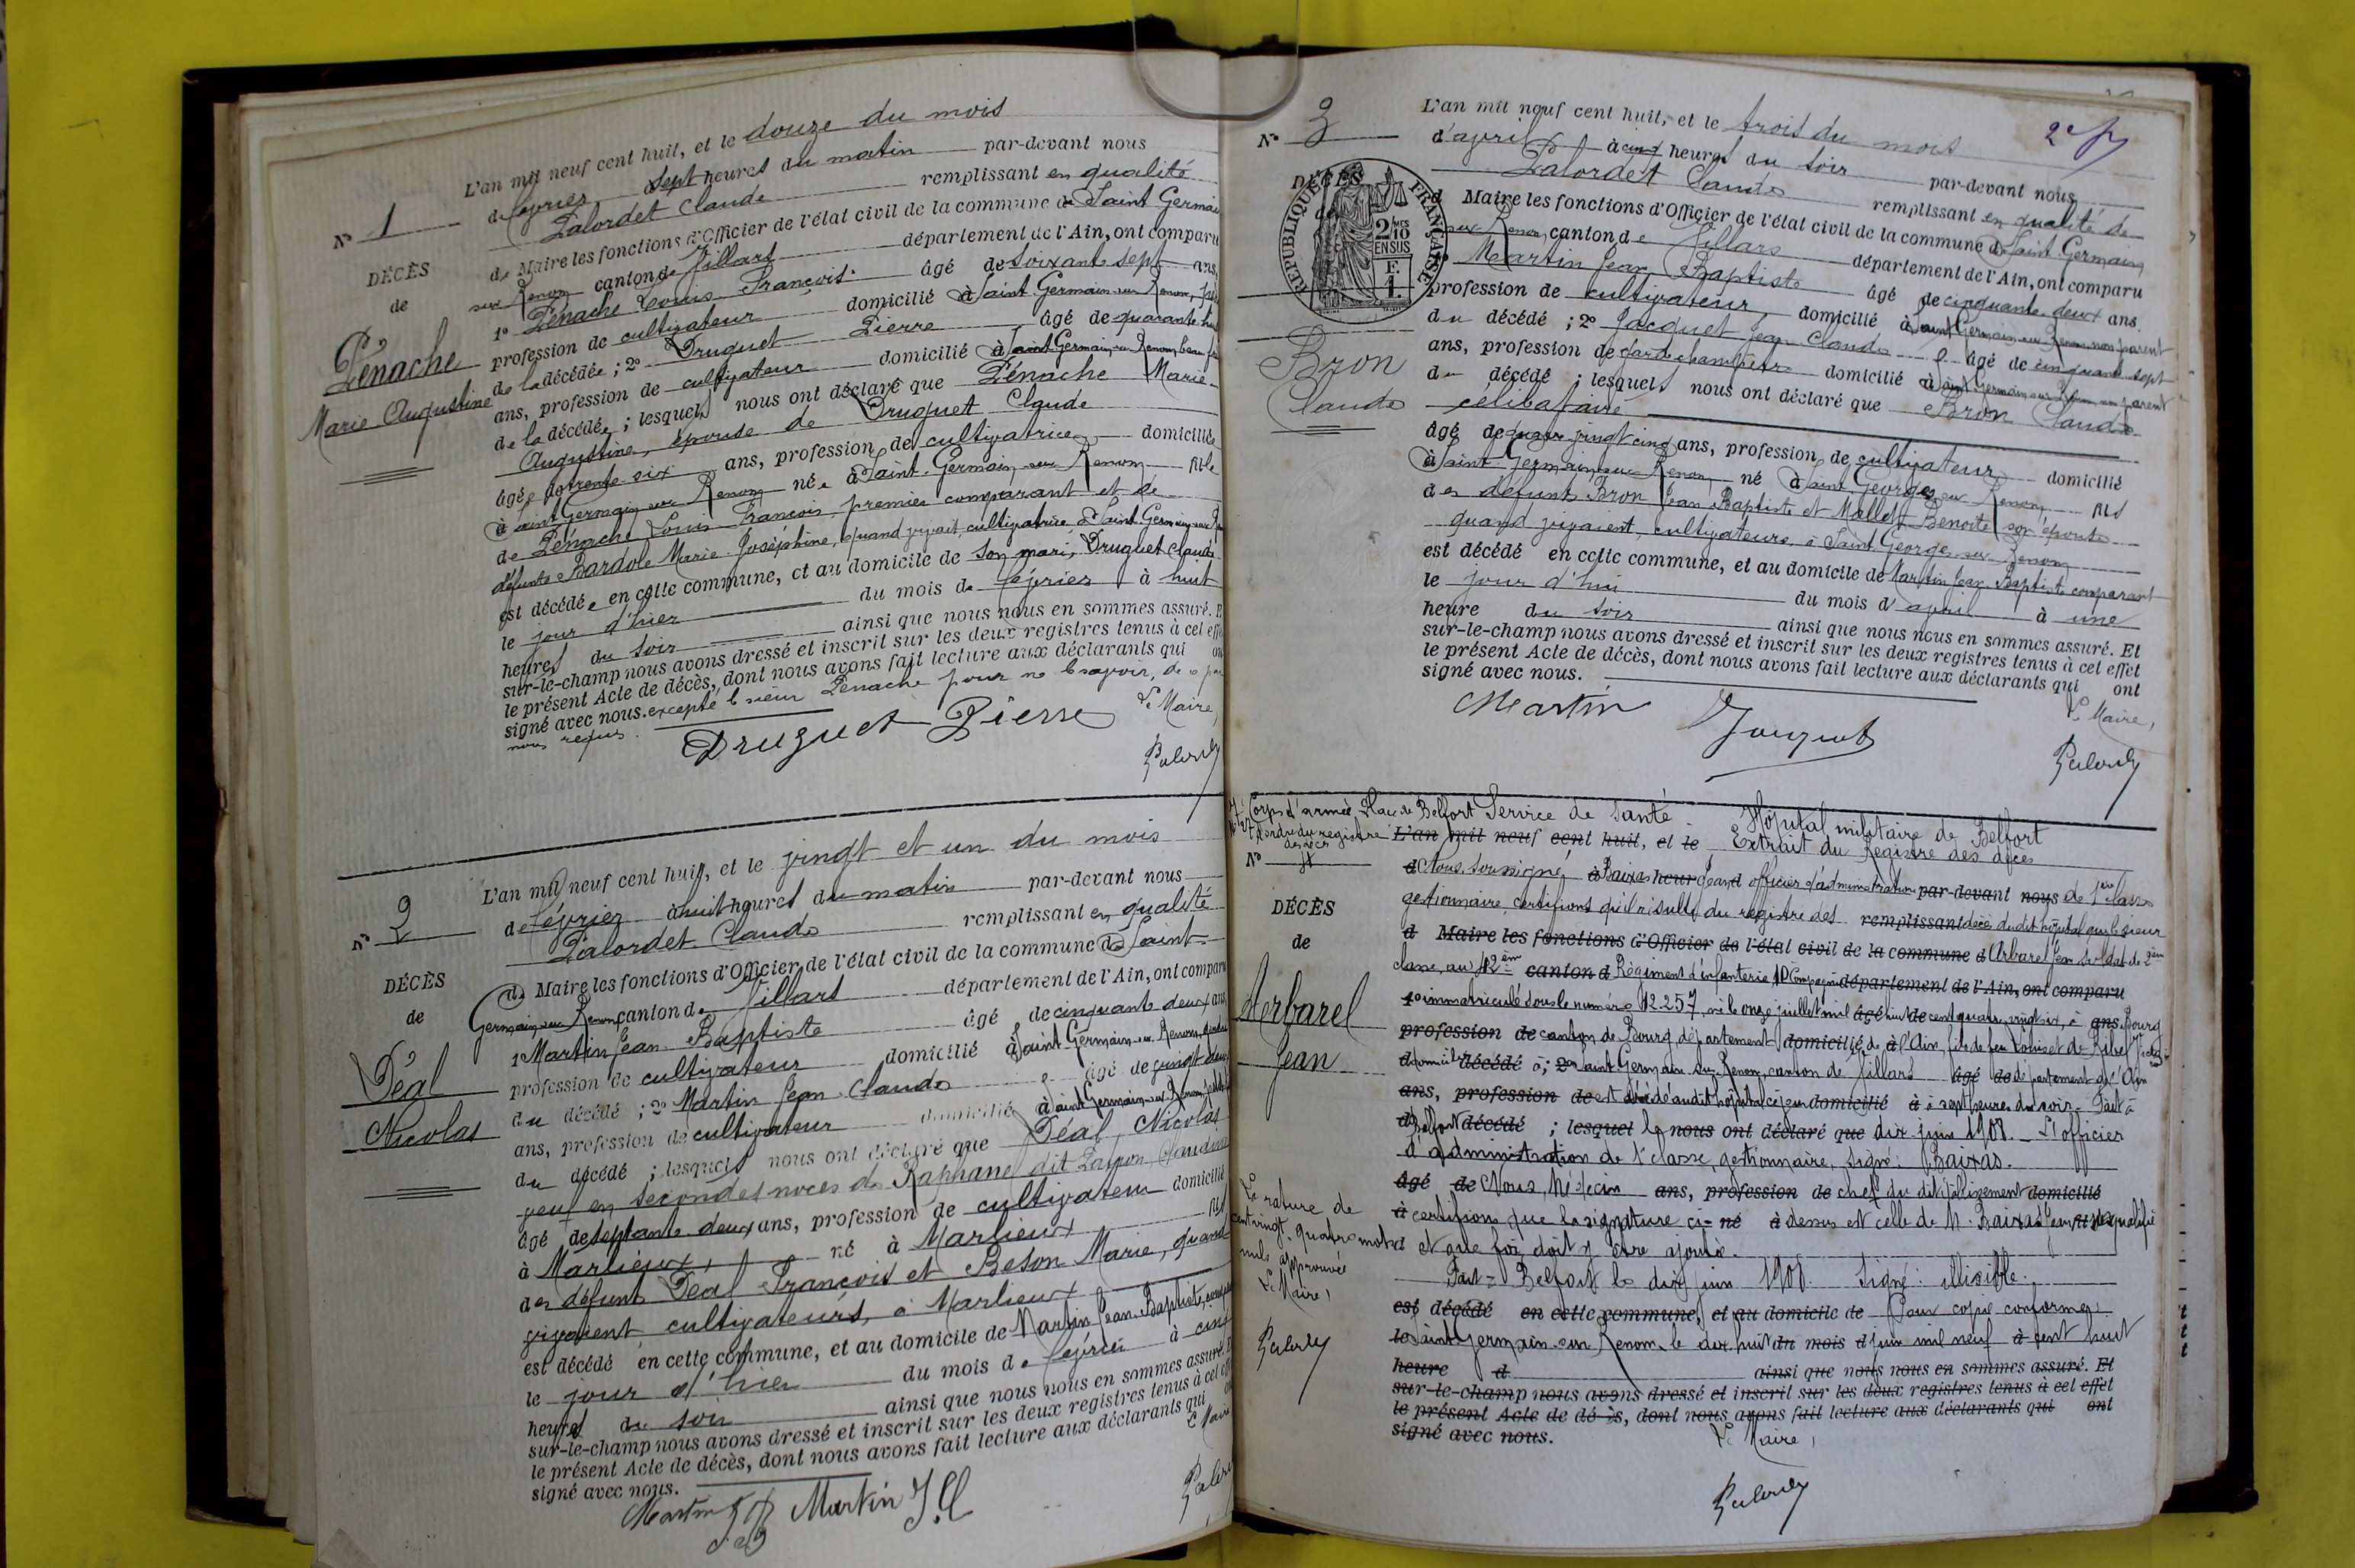 L'an mil neuf cent huit, et le douze du mois
de février à sept heures du matin par-devant nous
Palordet Claude remplissant en qualité
N° 1
de Maire les fonctions d'Officier de l'état civil de la commune de Saint Germain
DÉCÈS
sur Renon canton de Villars département de l'Ain, ont comparu
de
1° Pénache Louis François âgé de soixante sept ans,
profession de cultivateur domicilié à Saint Germain sur Renon, père
Pénache
de la décédée ; 2° Druguet Pierre âgé de quarante huit
Marie Augustine
ans, profession de cultivateur domicilié à Saint Germain sur Renon, beau frère
de la décédée ; lesquels nous ont déclaré que Pénache Marie
Augustine, épouse de Druguet Claude
âgée de trente six ans, profession de cultivatrice domiciliée
à Saint Germain sur Renon née à Saint Germain sur Renon fille
de Pénache Louis François, premier comparant et de
défunte Bardole Marie Joséphine, quand vivait, cultivatrice à Saint Germain sur
est décédée en cette commune, et au domicile de son mari, Druguet Claude
le jour d'hier du mois de février à huit
heures du soir ainsi que nous nous en sommes assuré. Et
sur-le-champ nous avons dressé et inscrit sur les deux registres tenus à cet effet
le présent Acte de décès, dont nous avons fait lecture aux déclarants qui ont
signé avec nous. excepté le sieur Pénache pour ne le savoir, de ce par
nous requis.
Le Maire,
Druguet Pierre
Palordet
L'an mil neuf cent huit, et le vingt et un du mois
de février à huit heures du matin par-devant nous
N° 2
Palordet Claude remplissant en qualité
DÉCÈS
de Maire les fonctions d'Officier de l'état civil de la commune de Saint
de
Germain sur Renon canton de Villars département de l'Ain, ont comparu
1° Martin Jean Baptiste âgé de cinquante deux ans
Déal
profession de cultivateur domicilié à Saint Germain sur Renon,
Nicolas
du décédé ; 2° Martin Jean Claude âgé de vingt deux
ans, profession de cultivateur domicilié à Saint Germain sur Renon,
du décédé ; lesquels nous ont déclaré que Déal Nicolas
veuf en secondes noces de Raphanel dit Payon Claudine
âgé de septante deux ans, profession de cultivateur domicilié
à Marlieux né à Marlieux fils
des défunts Déal François et Beson Marie, quand
vivaient cultivateurs, à Marlieux
est décédé en cette commune, et au domicile de Martin Jean Baptiste,
le jour d'hier du mois de février à cinq
heures du soir ainsi que nous nous en sommes assuré. Et
sur-le-champ nous avons dressé et inscrit sur les deux registres tenus à cet effet
le présent Acte de décès, dont nous avons fait lecture aux déclarants qui
signé avec nous.
Le Maire
Martin J B Martin J. Cl
Palordet
N° 3
L'an mil neuf cent huit, et le trois du mois
d'avril à cinq heures du soir par-devant nous
DÉCÈS
Palordet Claude remplissant en qualité de
de
Maire les fonctions d'Officier de l'état civil de la commune de Saint Germain
RÉPUBLIQUE FRANÇAISE
2/10 MES EN SUS
F. 1.
sur Renon, canton de Villars département de l'Ain, ont comparu
1° Martin Jean Baptiste âgé de cinquante deux ans,
profession de cultivateur domicilié à Saint Germain sur Renon, non parent
du décédé ; 2° Jacquet Jean Claude âgé de cinquante sept
Bron
ans, profession de garde champêtre domicilié à Saint Germain sur Renon, non parent
Claude
du décédé ; lesquels nous ont déclaré que Bron Claude
célibataire
âgé de quatre vingt cinq ans, profession de cultivateur domicilié
à Saint Germain sur Renon né à Saint Georges sur Renon fils
des défunts Bron Jean Baptiste et Mallet Benoite son épouse
quand vivaient, cultivateurs, à Saint Georges sur Renon
est décédé en cette commune, et au domicile de Martin Jean Baptiste comparant
le jour d'hui du mois d'avril à une
heure du soir ainsi que nous nous en sommes assuré. Et
sur-le-champ nous avons dressé et inscrit sur les deux registres tenus à cet effet
le présent Acte de décès, dont nous avons fait lecture aux déclarants qui ont
signé avec nous.
Le Maire,
Martin Jacquet
Palordet
Corps d'armée Place de Belfort Service de Santé Hôpital militaire de Belfort
d'ordre du registre L'an mil neuf cent huit, et le Extrait du Registre des décès
des décès
N° 4
d Nous, soussigné, à Baixas heur Jean d officier d'administration par-devant nous de 1ère classe
DÉCÈS
gestionnaire, certifions qu'il résulte du registre des remplissant décès dudit hôpital que le sieur
de
d Maire les fonctions d'Officier de l'état civil de la commune d Arbarel Jean soldat de 2ème
classe, au 42ème canton d Régiment d'infanterie, 10 Compagnie département de l'Ain, ont comparu
Herbarel
1° immatriculé sous le numéro 12.257, né le onze juillet mil âgé huit de cent quatre vingt six, à ans, Bourg
Jean
profession de canton de Bourg département domicilié de à l'Ain, fils de feu Louis et de Ribel
domicilié décédé à ; 2° Saint Germain sur Renon, canton de Villars âgé de département de l'Ain
ans, profession de est décédé audit hôpital ce jour domicilié à à sept heures du soir. Fait à
d Belfort décédé ; lesquel le nous ont déclaré que dix juin 1908. L'officier
d'administration de 1ère classe, gestionnaire, signé : Baixas.
âgé de Nous, Médecin ans, profession de chef du dit établissement domicilié
à certifions que la signature ci- né à dessus est celle de M. Baixas Jean fils qualifié
et que foi doit y être ajoutée.
Fait à Belfort le dix juin 1908. Signé : illisible.
est décédé en cette commune, et au domicile de Pour copie conforme :
le Saint Germain sur Renon, le dix huit du mois d juin mil neuf à cent huit
heure d ainsi que nous nous en sommes assuré. Et
sur-le-champ nous avons dressé et inscrit sur les deux registres tenus à cet effet
le présent Acte de décès, dont nous avons fait lecture aux déclarants qui ont
signé avec nous.
Le Maire,
Palordet
La rature de
cent vingt quatre mots
nuls approuvée
Le Maire,
Palordet